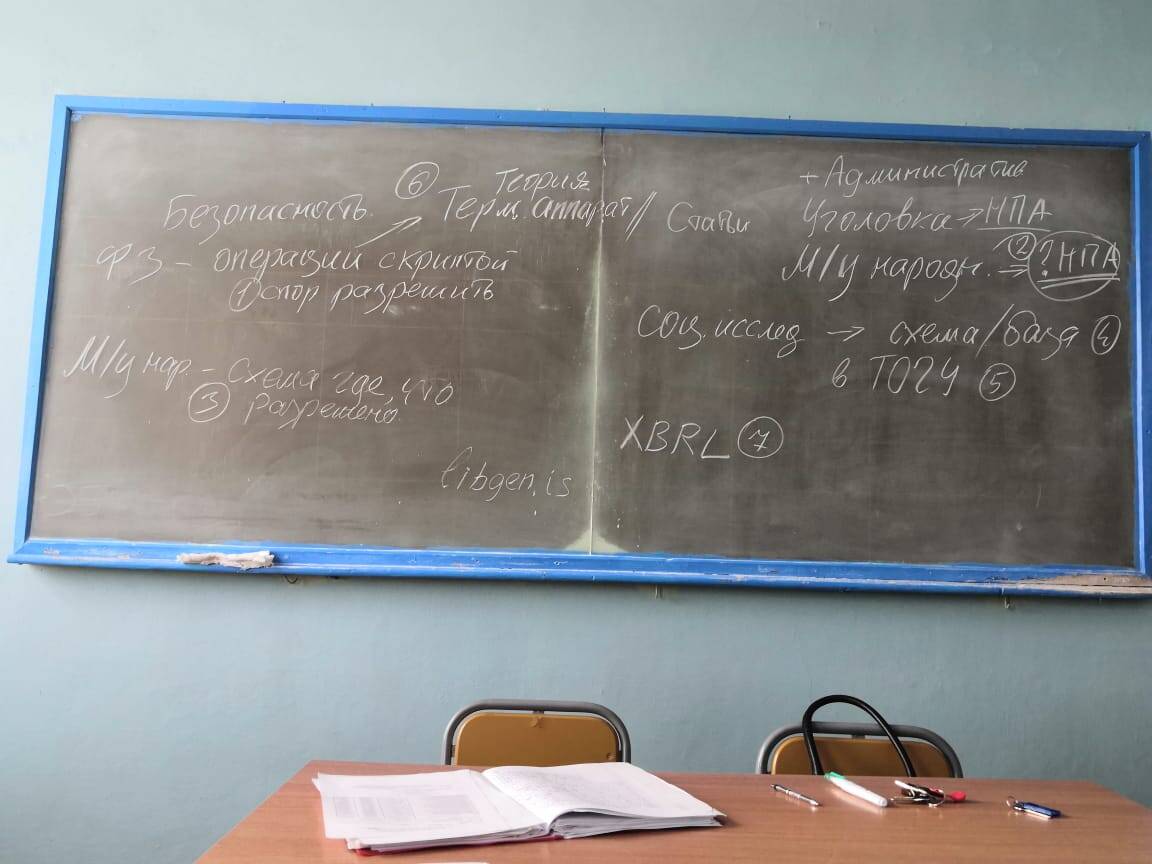 ⑥ Теория
Безопасность. Терм. аппарат // Статьи
ФЗ - операции с криптой
① спор разрешить
М/у нар. - схема где, что
③ разрешено.
libgen.is
+ Административ
Уголовка → НПА
М/у народн. → ② ? НПА
Соц. исслед → схема/база ④
в ТОГУ ⑤
XBRL ⑦